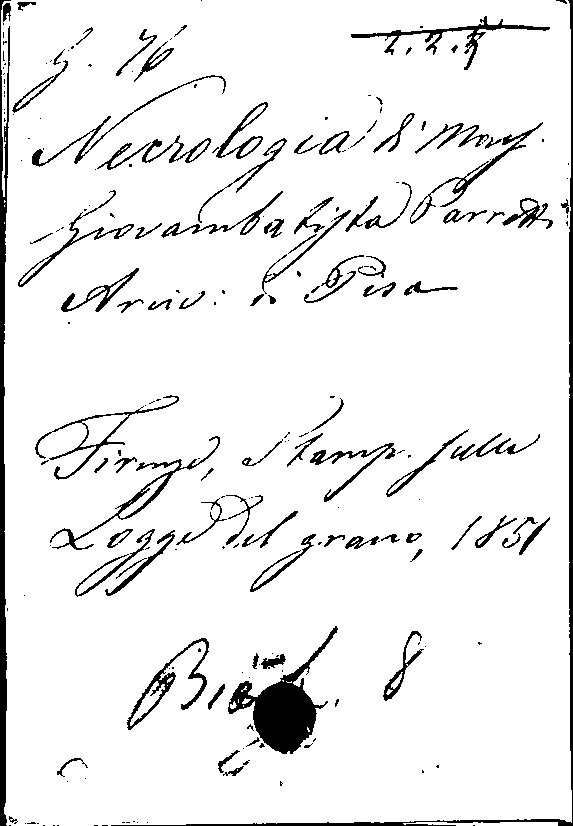 G. 76
2.2.
Necrologia di Mons.
Giovambatista Parretti
Arciv: di Pisa
Firenze, Stamp. sulle
Logge del grano, 1851
8